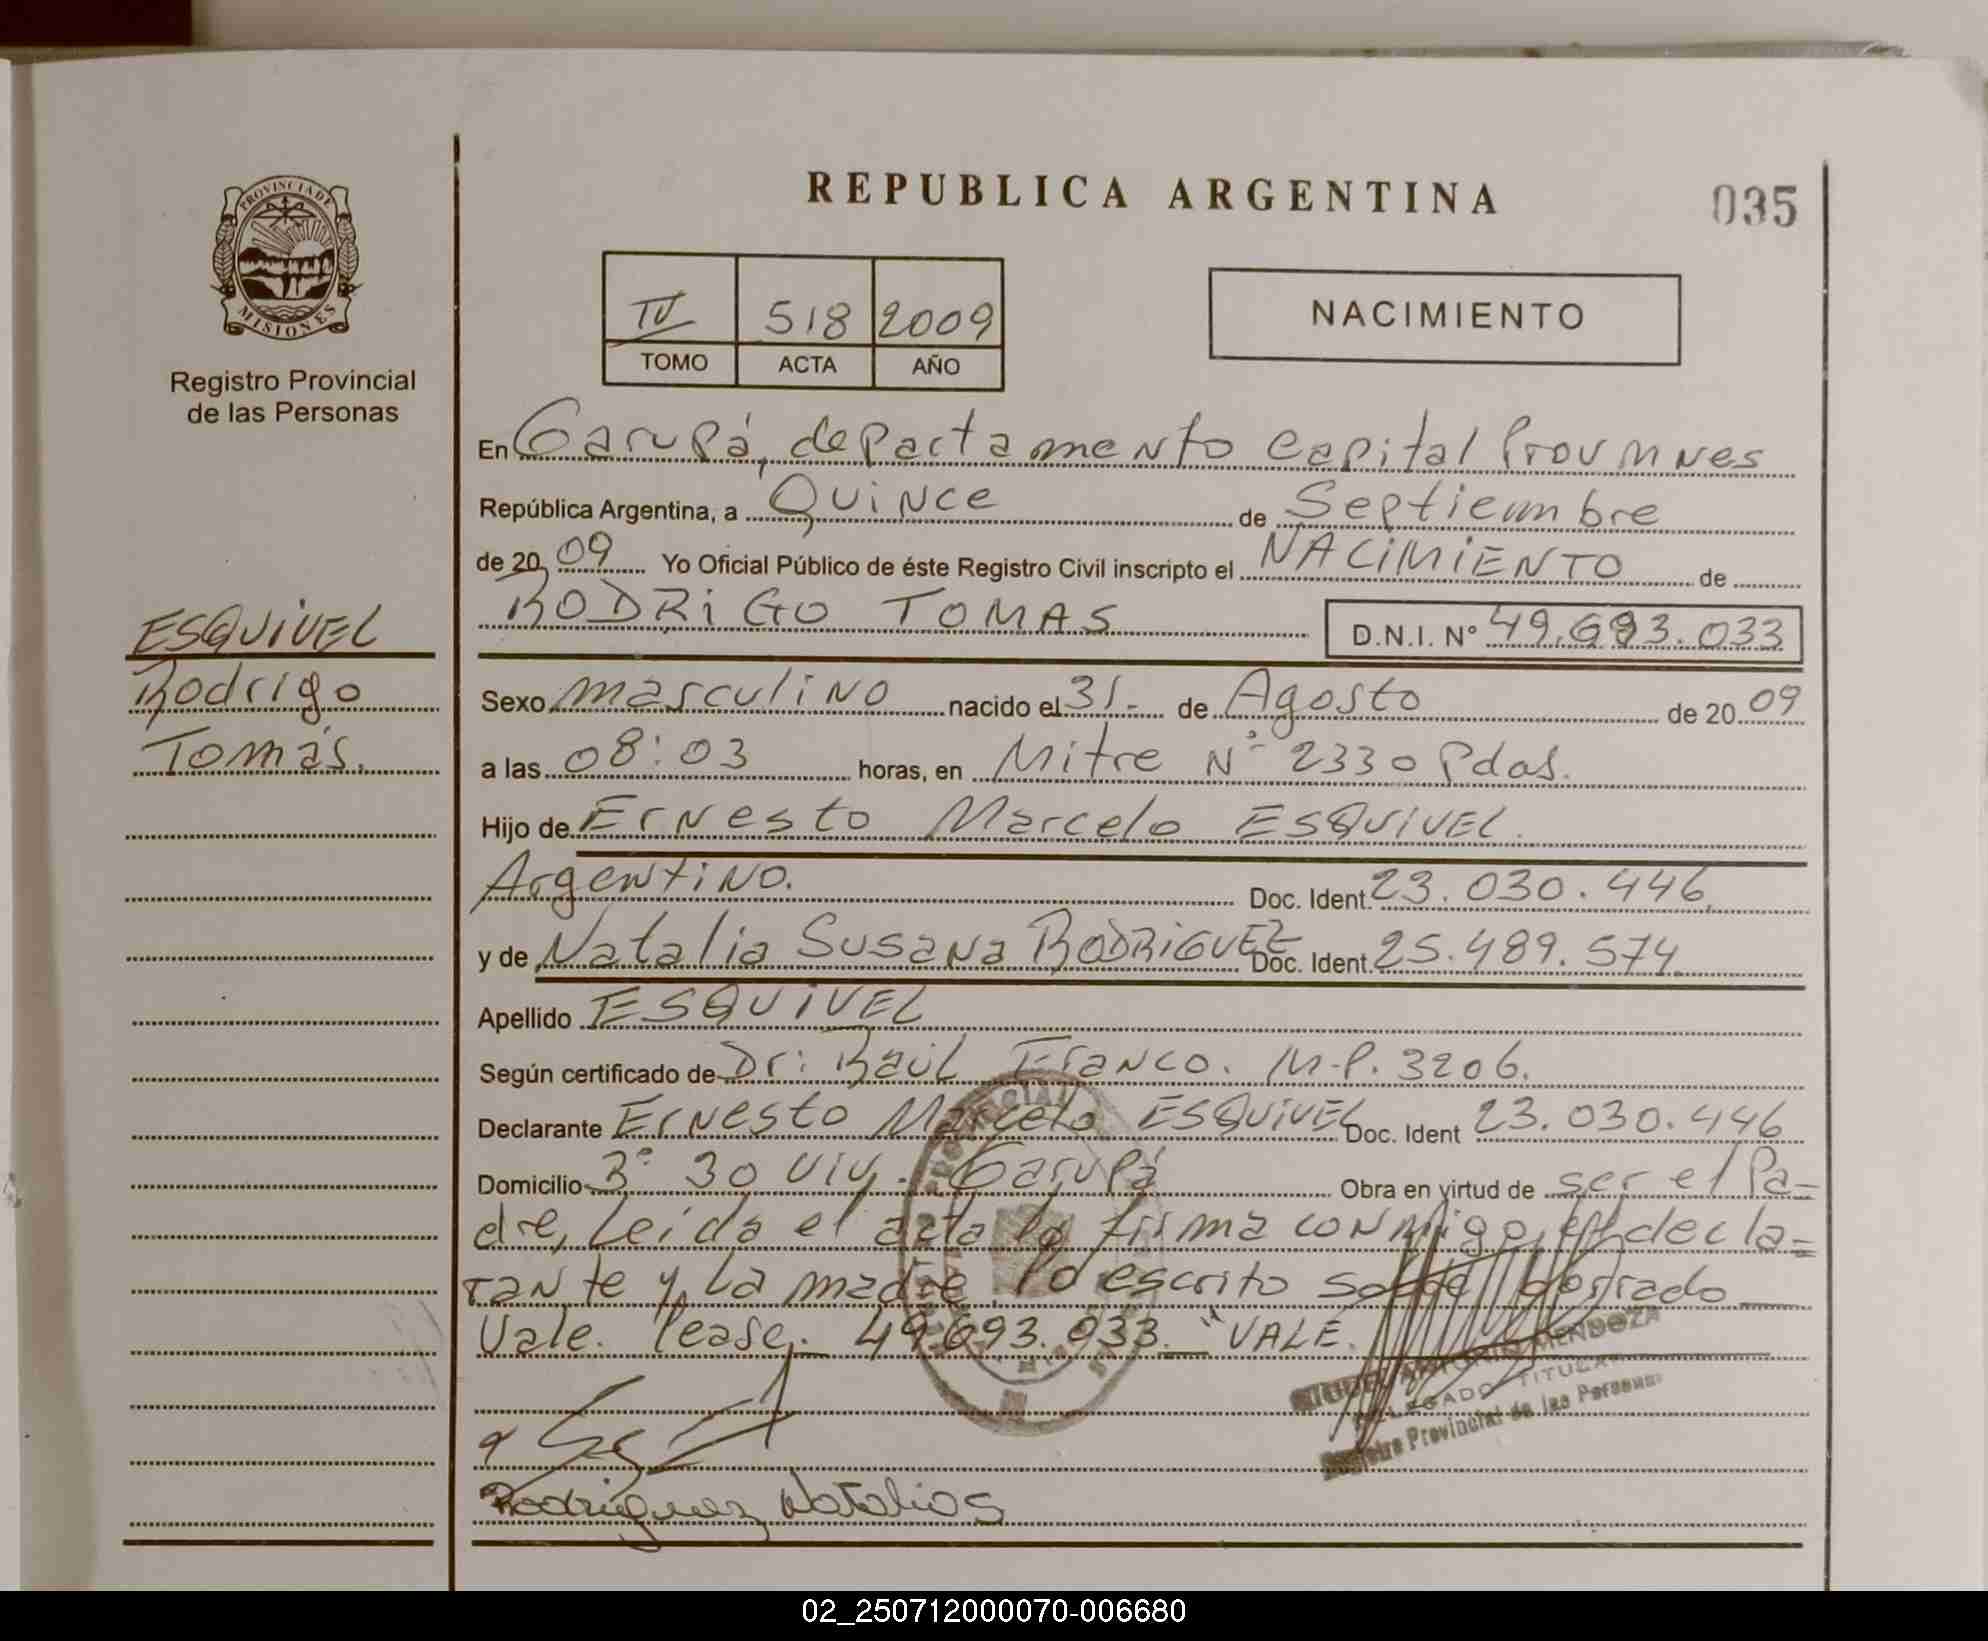 REPUBLICA ARGENTINA
035
PROVINCIA DE
MISIONES
Registro Provincial
de las Personas
IV 518 2009
TOMO ACTA AÑO
NACIMIENTO
En Garupá, departamento Capital Prov Mnes
República Argentina, a Quince de Septiembre
de 20 09 Yo Oficial Público de éste Registro Civil inscripto el NACIMIENTO de
RODRIGO TOMAS D.N.I. Nº 49.693.033
ESQUIVEL
Rodrigo
Tomás.
Sexo masculino nacido el 31.- de Agosto de 20 09
a las 08:03 horas, en Mitre Nº 2330 Pdas.
Hijo de Ernesto Marcelo ESQUIVEL.
Argentino. Doc. Ident. 23.030.446
y de Natalia Susana RODRIGUEZ Doc. Ident. 25.489.574
Apellido ESQUIVEL
Según certificado de Dr: Raúl Franco. M.P. 3206.
Declarante Ernesto Marcelo ESQUIVEL Doc. Ident 23.030.446
Domicilio Bº 30 Viv. Garupá Obra en virtud de ser el Pa-
dre, Leída el acta la firma conmigo el decla-
rante y La madre lo escrito sobre borrado
Vale. lease. 49.693.033. "VALE.
ANTONIO MENDOZA
DELEGADO TITULAR
Registro Provincial de las Personas
Rodriguez Natalia S
02_250712000070-006680